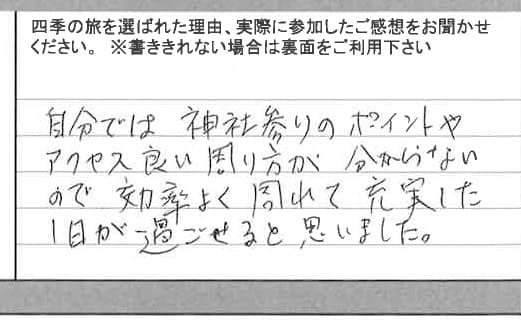 四季の旅を選ばれた理由、実際に参加したご感想をお聞かせ
ください。 ※書ききれない場合は裏面をご利用下さい
自分では 神社参りの ポイントや
アクセス良い 周り方が 分からない
ので 効率よく 周れて 充実した
1日が 過ごせると 思いました。